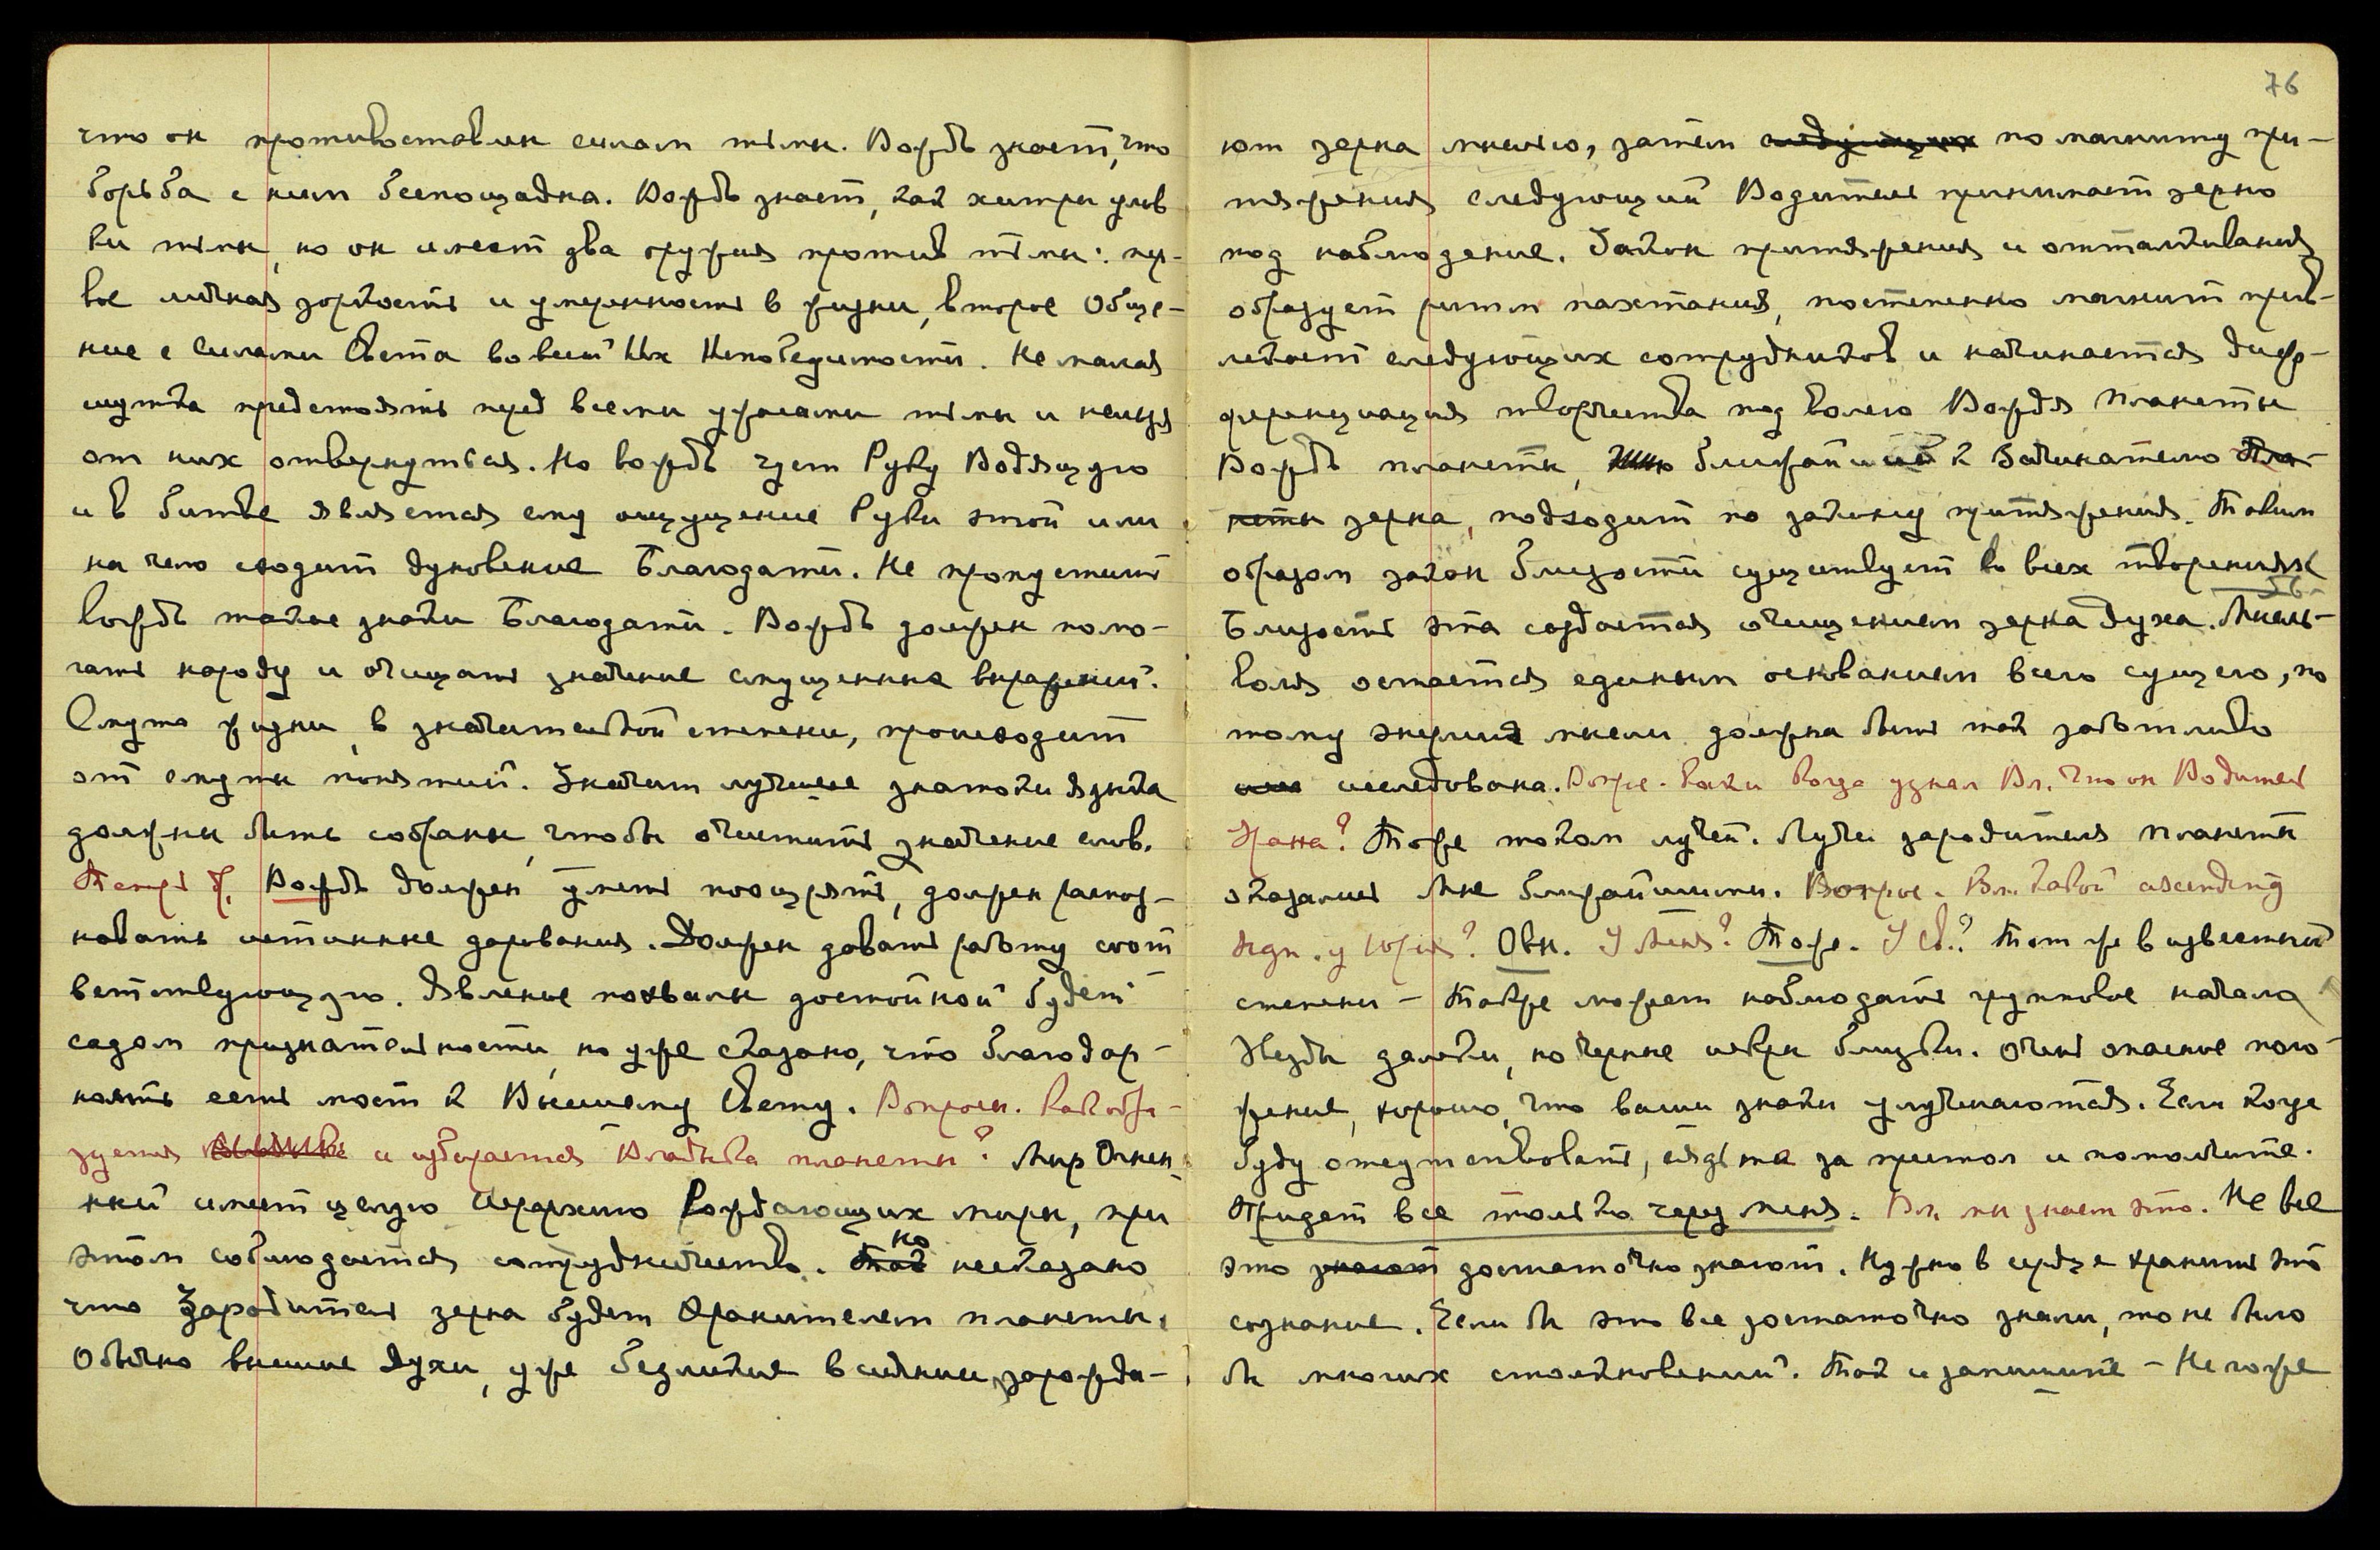 что он противоставлен силам тьмы. Вождь знает, что
борьба с ним беспощадна. Вождь знает, как хитры улов
ки тьмы, но он имеет два оружия против тьмы: пер-
вое личная зоркость и умеренность в жизни, второе Обще-
ние с Силами Света во всей Их Непобедимости. Не малая
шутка предстоять пред всеми ужасами тьмы и нельзя
от них отвернуться. Но вождь чует Руку Водящую
и в битве является ему ощущение Руки этой или
на чело сходит дуновение Благодати. Не пропустит
вождь такие знаки Благодати. Вождь должен помо-
гать народу и очищать значение смущенных выражений.
Смута жизни, в значительной степени, происходит
от смуты понятий. Значит лучшие знатоки языка
должны быть собраны, чтобы очистить значение слов.
Вождь должен уметь поощрять, должен распоз-
навать истинные дарования. Должен давать работу соот
ветствующую. Явление похвалы достойной будет
садом признательности, но уже сказано, что благодар-
ность есть мост к Высшему Свету. Вопросы. Как обра-
зуется и избирается Владыка планеты? Мир Огнен
ный имеет целую Иерархию Рождающих миры, при
этом соблюдается сотрудничество. Так но несказано
что Зародитель зерна будет Хранителем планеты.
Обычно высшие Духи, уже безликие в сиянии, зарожда-
76
ют зерна мыслью, затем следующих по магниту при-
тяжения следующий Водитель принимает зерно
под наблюдение. Закон притяжения и отталкивания
образует ритм пахтания, постепенно магнит прив-
лекает следующих сотрудников и начинается диф-
ференциация творчества под волею Вождя планеты
Вождь планеты, ближайший к Зачинателю Пла-
неты зерна, подходит по закону притяжения. Таким
образом закон близости существует во всех творениях
Близость эта создается очищением зерна духа. Мысль-
воля остается единым основанием всего сущего, по
тому энергия мысли должна быть так заботливо
исследована. Когда узнал Вл. что он Водитель
Тоже током лучей. Лучи зародителя планеты
оказались Мне ближайшими. Вопрос. Вл. какой ascending
у Юрия? Овн. У Меня? Тоже. У Св.? Тот же в известной
степени – Также может наблюдать групповые начала
Звезды далеки, но черные искры близки. Очень опасное поло-
жение, хорошо, что ваши знаки улучшаются. Если когда
буду отсутствовать, сядьте за престол и помолчите.
Придет все только через меня. Вл. мы знаем это. Не все
это знают достаточно знают. Нужно в сердце хранить это
сознание. Если бы это все достаточно знали, то не было
бы многих столкновений. Так и запишите –